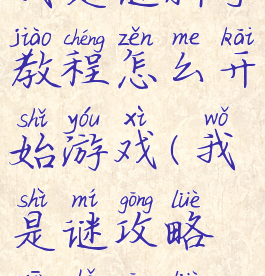 jiào chéng zěn me kāi
教程怎么开
shǐ yóu xì wǒ
始游戏(我
shì mí gōng lüè
是谜攻略